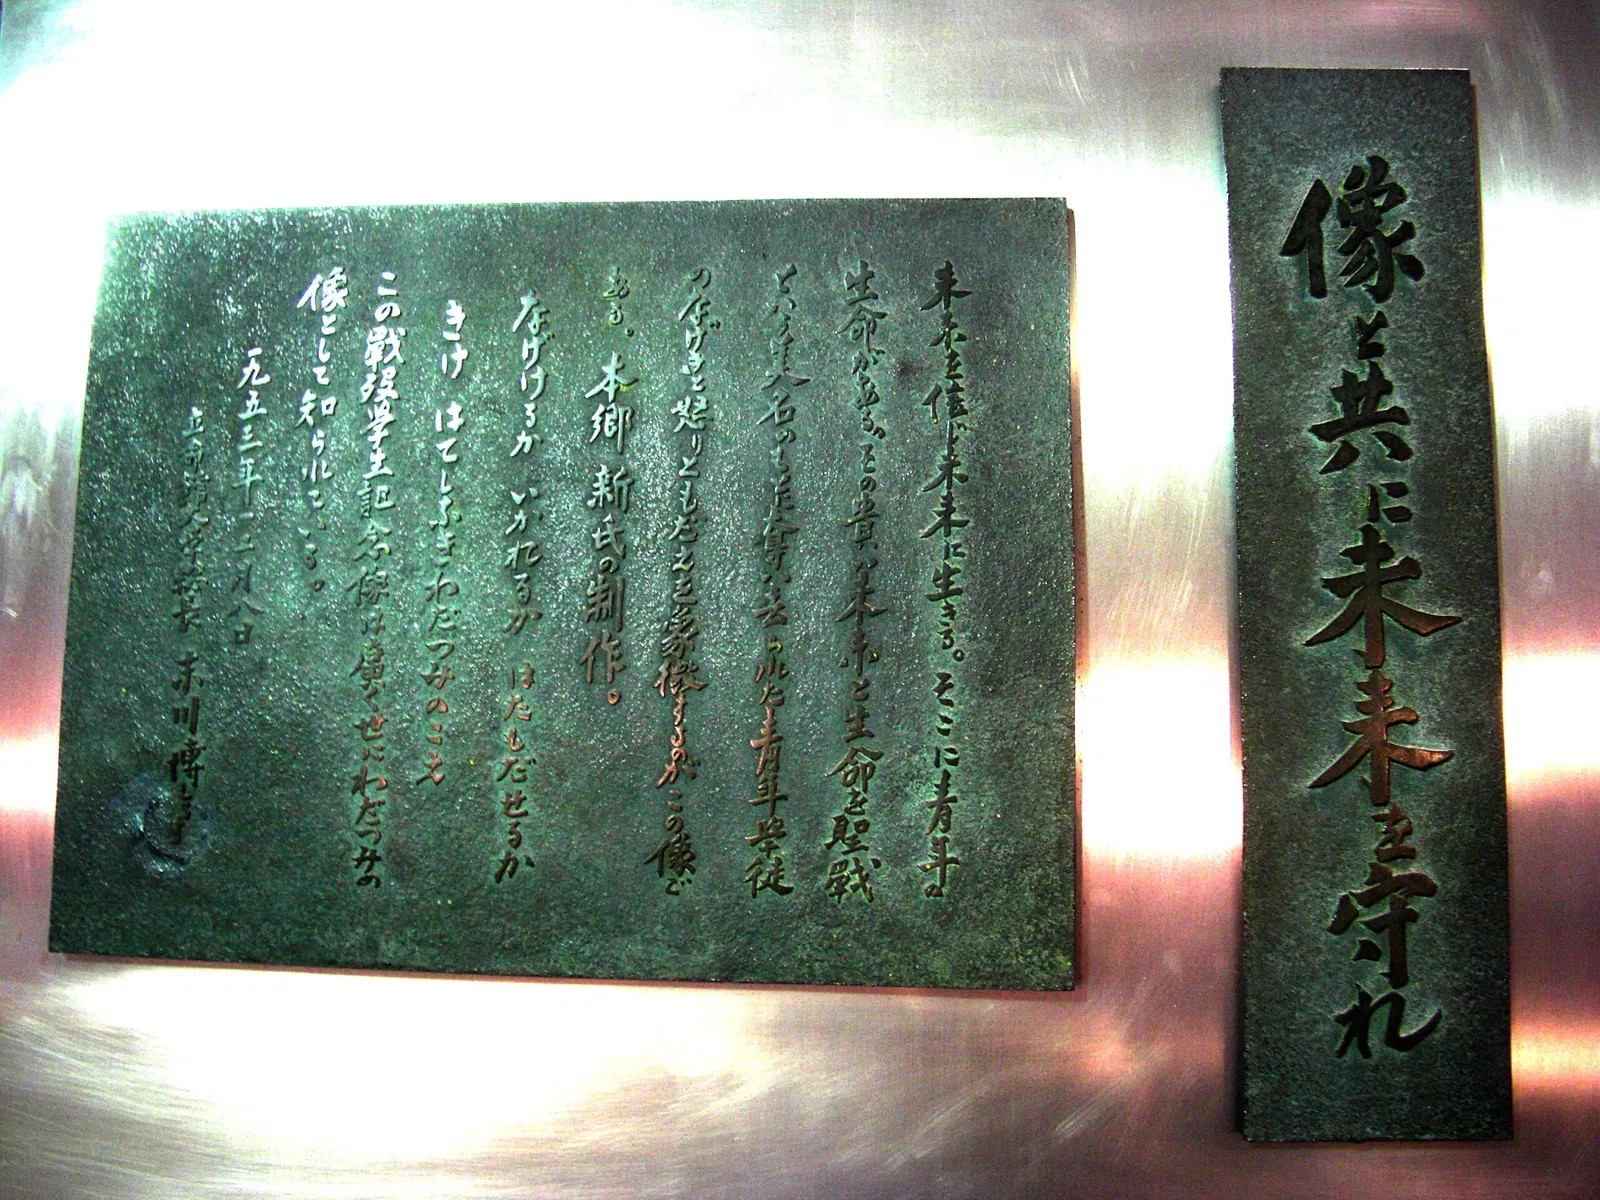 像と共に未来を守れ
未来を信じ未来に生きる。そこに青年の
生命がある。その貴い未来と生命を聖戦
という美名のもとに奪い去られた青年学徒
のなげきと怒りともだえを象徴するのがこの像で
ある。本郷新氏の制作。
なげけるか いかれるか はたもだせるか
きけ はてしなきわだつみのこえ
この戰歿学生記念像は廣く世にわだつみの
像として知られている。
一九五三年一二月八日
立命館大学総長 末川博